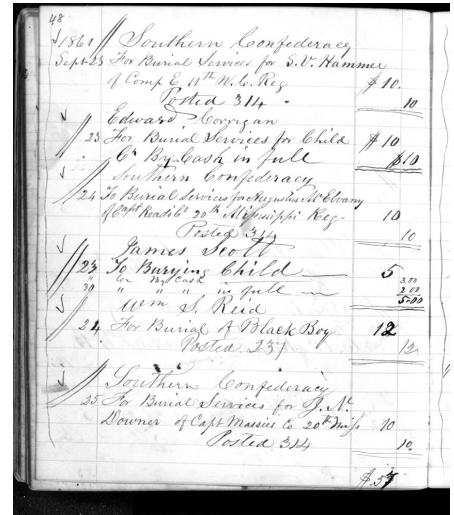 48
1861 Southern Confederacy
Sept 23 For Burial Services for S. V. Hammer
of Comp E 11th N. C. Reg $10.
Posted 314 . 10
Edward Corrigan
23 For Burial Services for Child $10
Cr By Cash in full $10
Southern Confederacy
24 To Burial Services for Augustus McElvany
of Capt 20th Mississippi Reg- 10
Posted 314 10
James Scott
23 To Burying Child 5
" Cr By Cash 3.00
30 " " " in full 2.00
5.00
Wm S. Reid
24 For Burial of Black Boy 12
Posted 237 12
Southern Confederacy
25 For Burial Services for J. N.
Downer of Capt Massies Co 20th Miss 10
Posted 314 10.
$.57